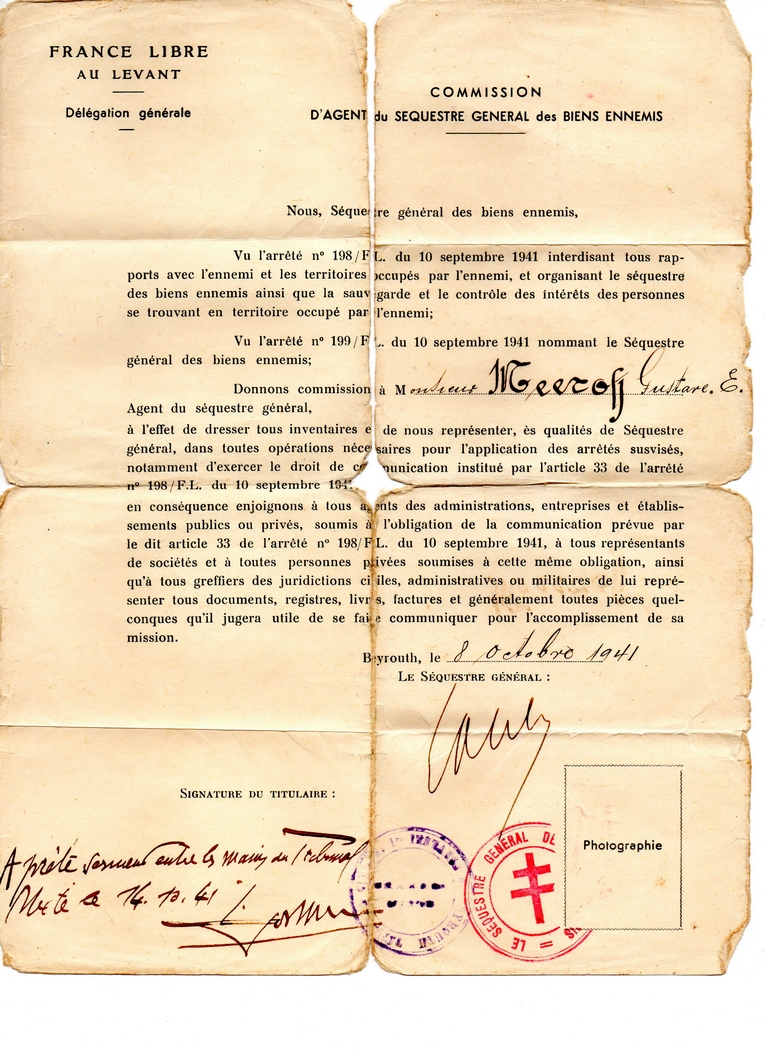 FRANCE LIBRE
AU LEVANT
Délégation générale
COMMISSION
D'AGENT du SEQUESTRE GENERAL des BIENS ENNEMIS
Nous, Séquestre général des biens ennemis,
Vu l'arrêté nº 198/F.L. du 10 septembre 1941 interdisant tous rap-
ports avec l'ennemi et les territoires occupés par l'ennemi, et organisant le séquestre
des biens ennemis ainsi que la sauvegarde et le contrôle des intérêts des personnes
se trouvant en territoire occupé par l'ennemi;
Vu l'arrêté nº 199/F.L. du 10 septembre 1941 nommant le Séquestre
général des biens ennemis;
Donnons commission à Monsieur Meeroff Gustave. E.
Agent du séquestre général,
à l'effet de dresser tous inventaires et de nous représenter, ès qualités de Séquestre
général, dans toutes opérations nécessaires pour l'application des arrêtés susvisés,
notamment d'exercer le droit de communication institué par l'article 33 de l'arrêté
nº 198/F.L. du 10 septembre 1941.
en conséquence enjoignons à tous agents des administrations, entreprises et établis-
sements publics ou privés, soumis à l'obligation de la communication prévue par
le dit article 33 de l'arrêté nº 198/F.L. du 10 septembre 1941, à tous représentants
de sociétés et à toutes personnes privées soumises à cette même obligation, ainsi
qu'à tous greffiers des juridictions civiles, administratives ou militaires de lui repré-
senter tous documents, registres, livres, factures et généralement toutes pièces quel-
conques qu'il jugera utile de se faire communiquer pour l'accomplissement de sa
mission.
Beyrouth, le 8 Octobre 1941
LE SÉQUESTRE GÉNÉRAL :
SIGNATURE DU TITULAIRE :
Photographie
A prêté serment entre les mains du Tribunal
Mixte le 14. 10. 41
LE SÉQUESTRE GÉNÉRAL DE